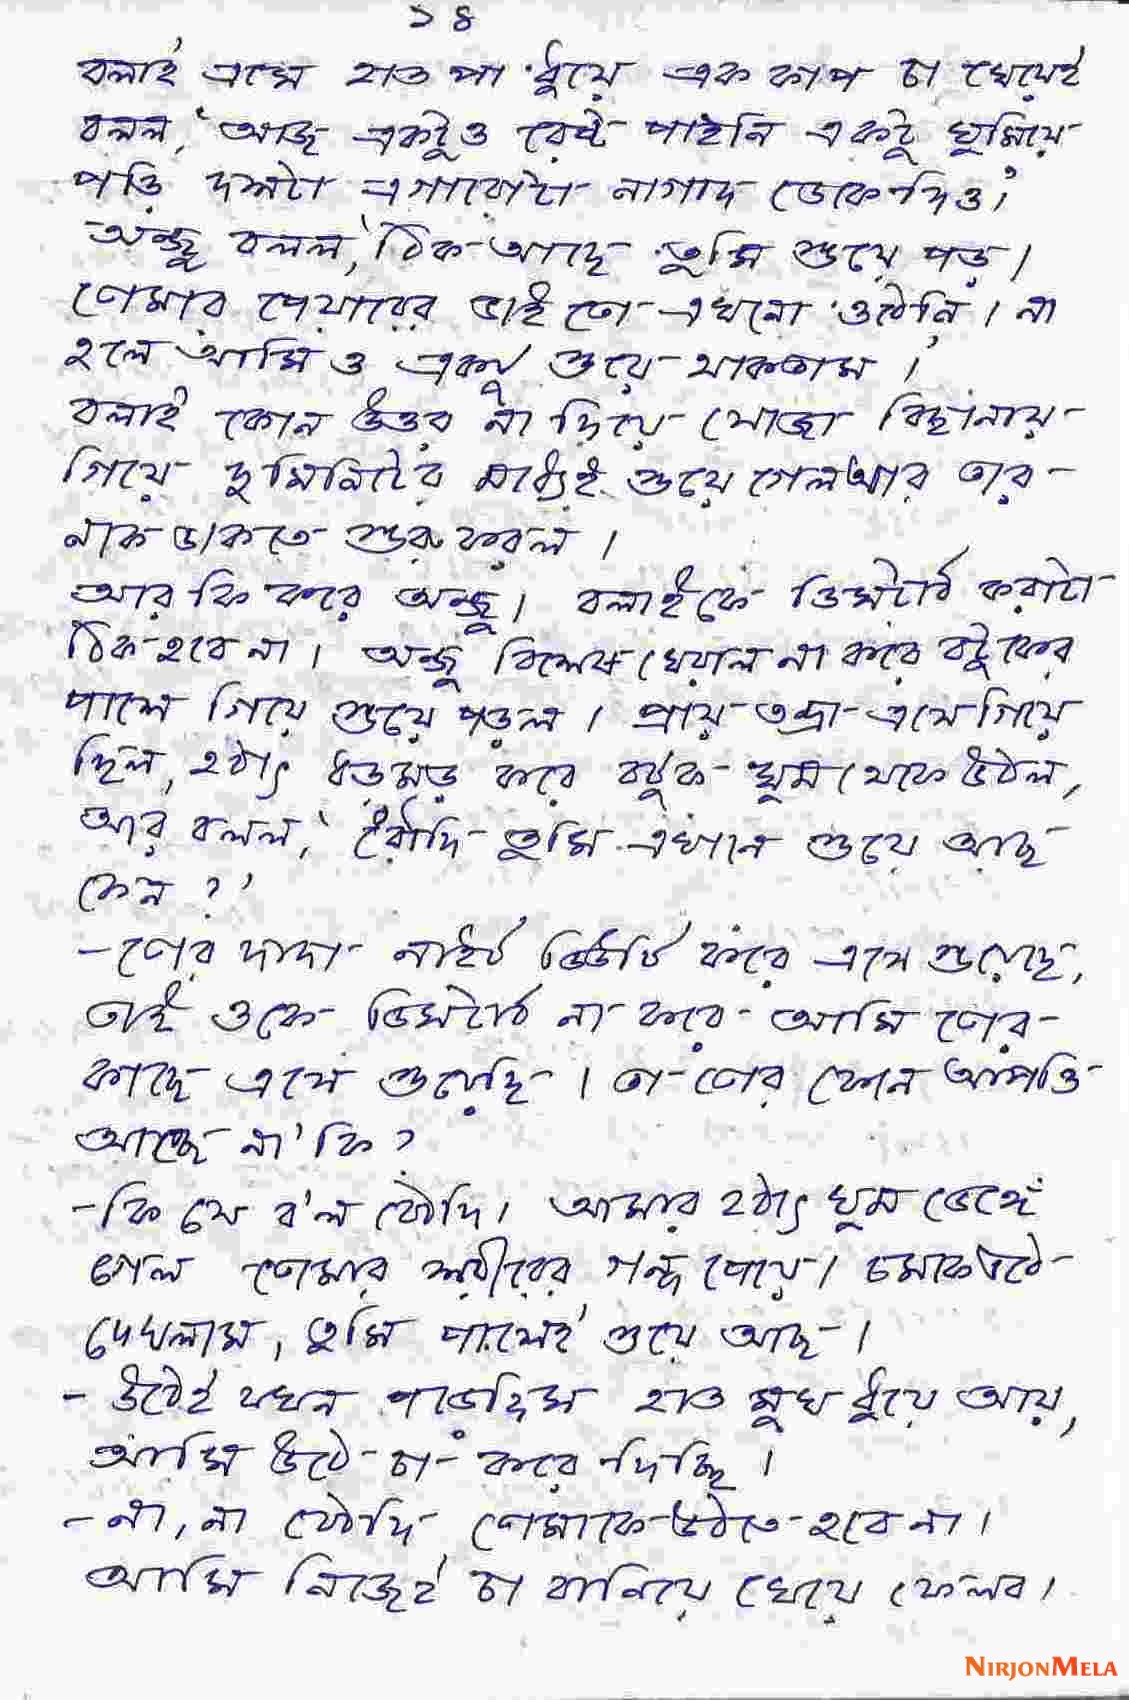 ১৪
বলাই এসে হাত পা ধুয়ে এক কাপ চা খেয়েই
বলল, 'আজ একটুও রেষ্ট পাইনি একটু ঘুমিয়ে
পড়ি দশটা এগারোটা নাগাদ ডেকে দিও।'
অঞ্জু বলল, 'ঠিক আছে তুমি শুয়ে পড়।
তোমার পেয়ারের ভাই তো এখনো ওঠেনি। না
হলে আমি ও একটু শুয়ে থাকতাম।'
বলাই কোন উত্তর না দিয়ে সোজা বিছানায়
গিয়ে দুমিনিটের মধ্যেই শুয়ে গেল আর তার
নাক ডাকতে শুরু করল।
আর কি করে অঞ্জু। বলাইকে ডিসটার্ব করাটা
ঠিক হবে না। অঞ্জু বিশেষ খেয়াল না করে বটুকের
পাশে গিয়ে শুয়ে পড়ল। প্রায় তন্দ্রা এসে গিয়ে
ছিল, হঠাৎ ধড়মড় করে বটুক ঘুম থেকে উঠল,
আর বলল, 'বৌদি তুমি এখানে শুয়ে আছ
কেন ?'
- তোর দাদা নাইট ডিউটি করে এসে শুয়েছে,
তাই ওকে ডিসটার্ব না করে আমি তোর
কাছে এসে শুয়েছি। তা তোর কোন আপত্তি
আছে না'কি ?
- কি যে ব'ল বৌদি। আমার হঠাৎ ঘুম ভেঙ্গে
গেল তোমার শরীরের গন্ধ পেয়ে। চমকে উঠে
দেখলাম, তুমি পাশেই শুয়ে আছ।
- উঠেই যখন পড়েছিস হাত মুখ ধুয়ে আয়,
আমি উঠে চা করে দিচ্ছি।
- না, না বৌদি তোমাকে উঠতে হবে না।
আমি নিজেই চা বানিয়ে খেয়ে ফেলব।
NIRJONMELA